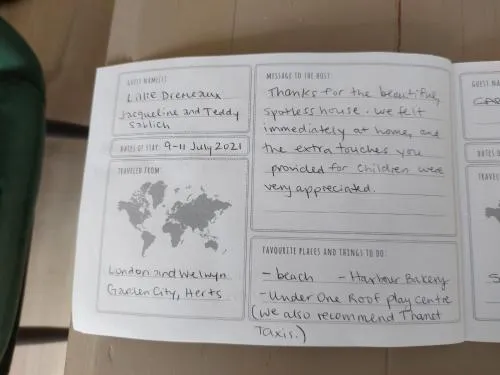 GUEST NAME(S):
Lillie Dremeaux
Jacqueline and Teddy
Sablich
DATES OF STAY: 9-11 July 2021
TRAVELED FROM:
London and Welwyn
Garden City, Herts
MESSAGE TO THE HOST:
Thanks for the beautiful,
spotless house. We felt
immediately at home, and
the extra touches you
provided for children were
very appreciated.
FAVOURITE PLACES AND THINGS TO DO:
- beach - Harbour Bakery
- Under One Roof play centre
(We also recommend Thanet
Taxis.)
GUEST NA
DATES O
TRAVEL